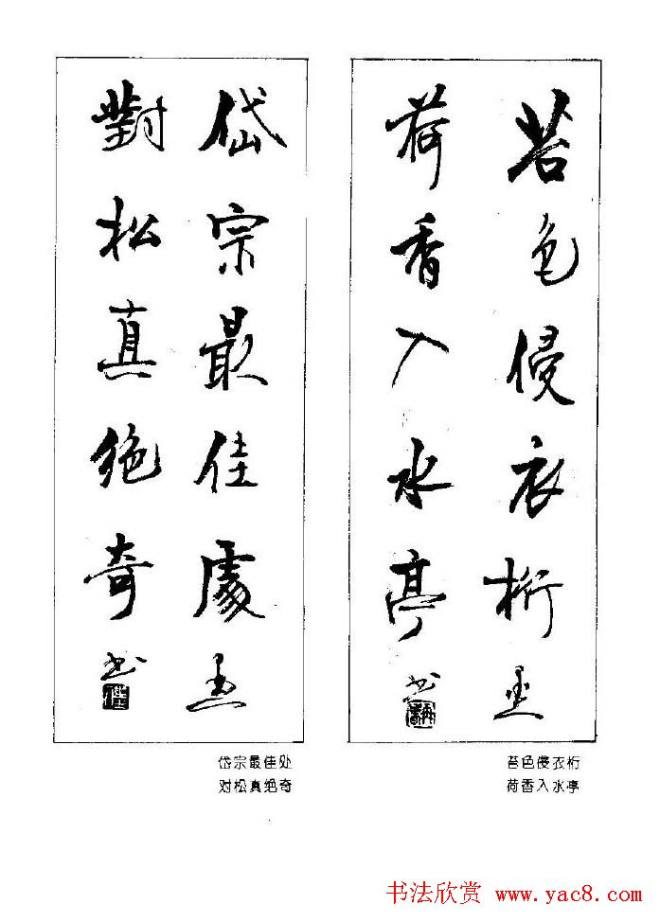 苔色侵衣桁
荷香入水亭
书
岱宗最佳處
對松真绝奇
书
苔色侵衣桁
荷香入水亭
岱宗最佳处
对松真绝奇
书法欣赏 www.yac8.com